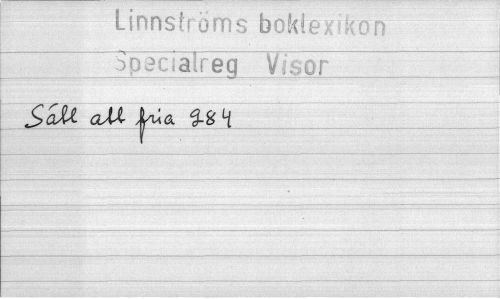 Linnströms boklexikon
Specialreg Visor
Sätt att fria 984